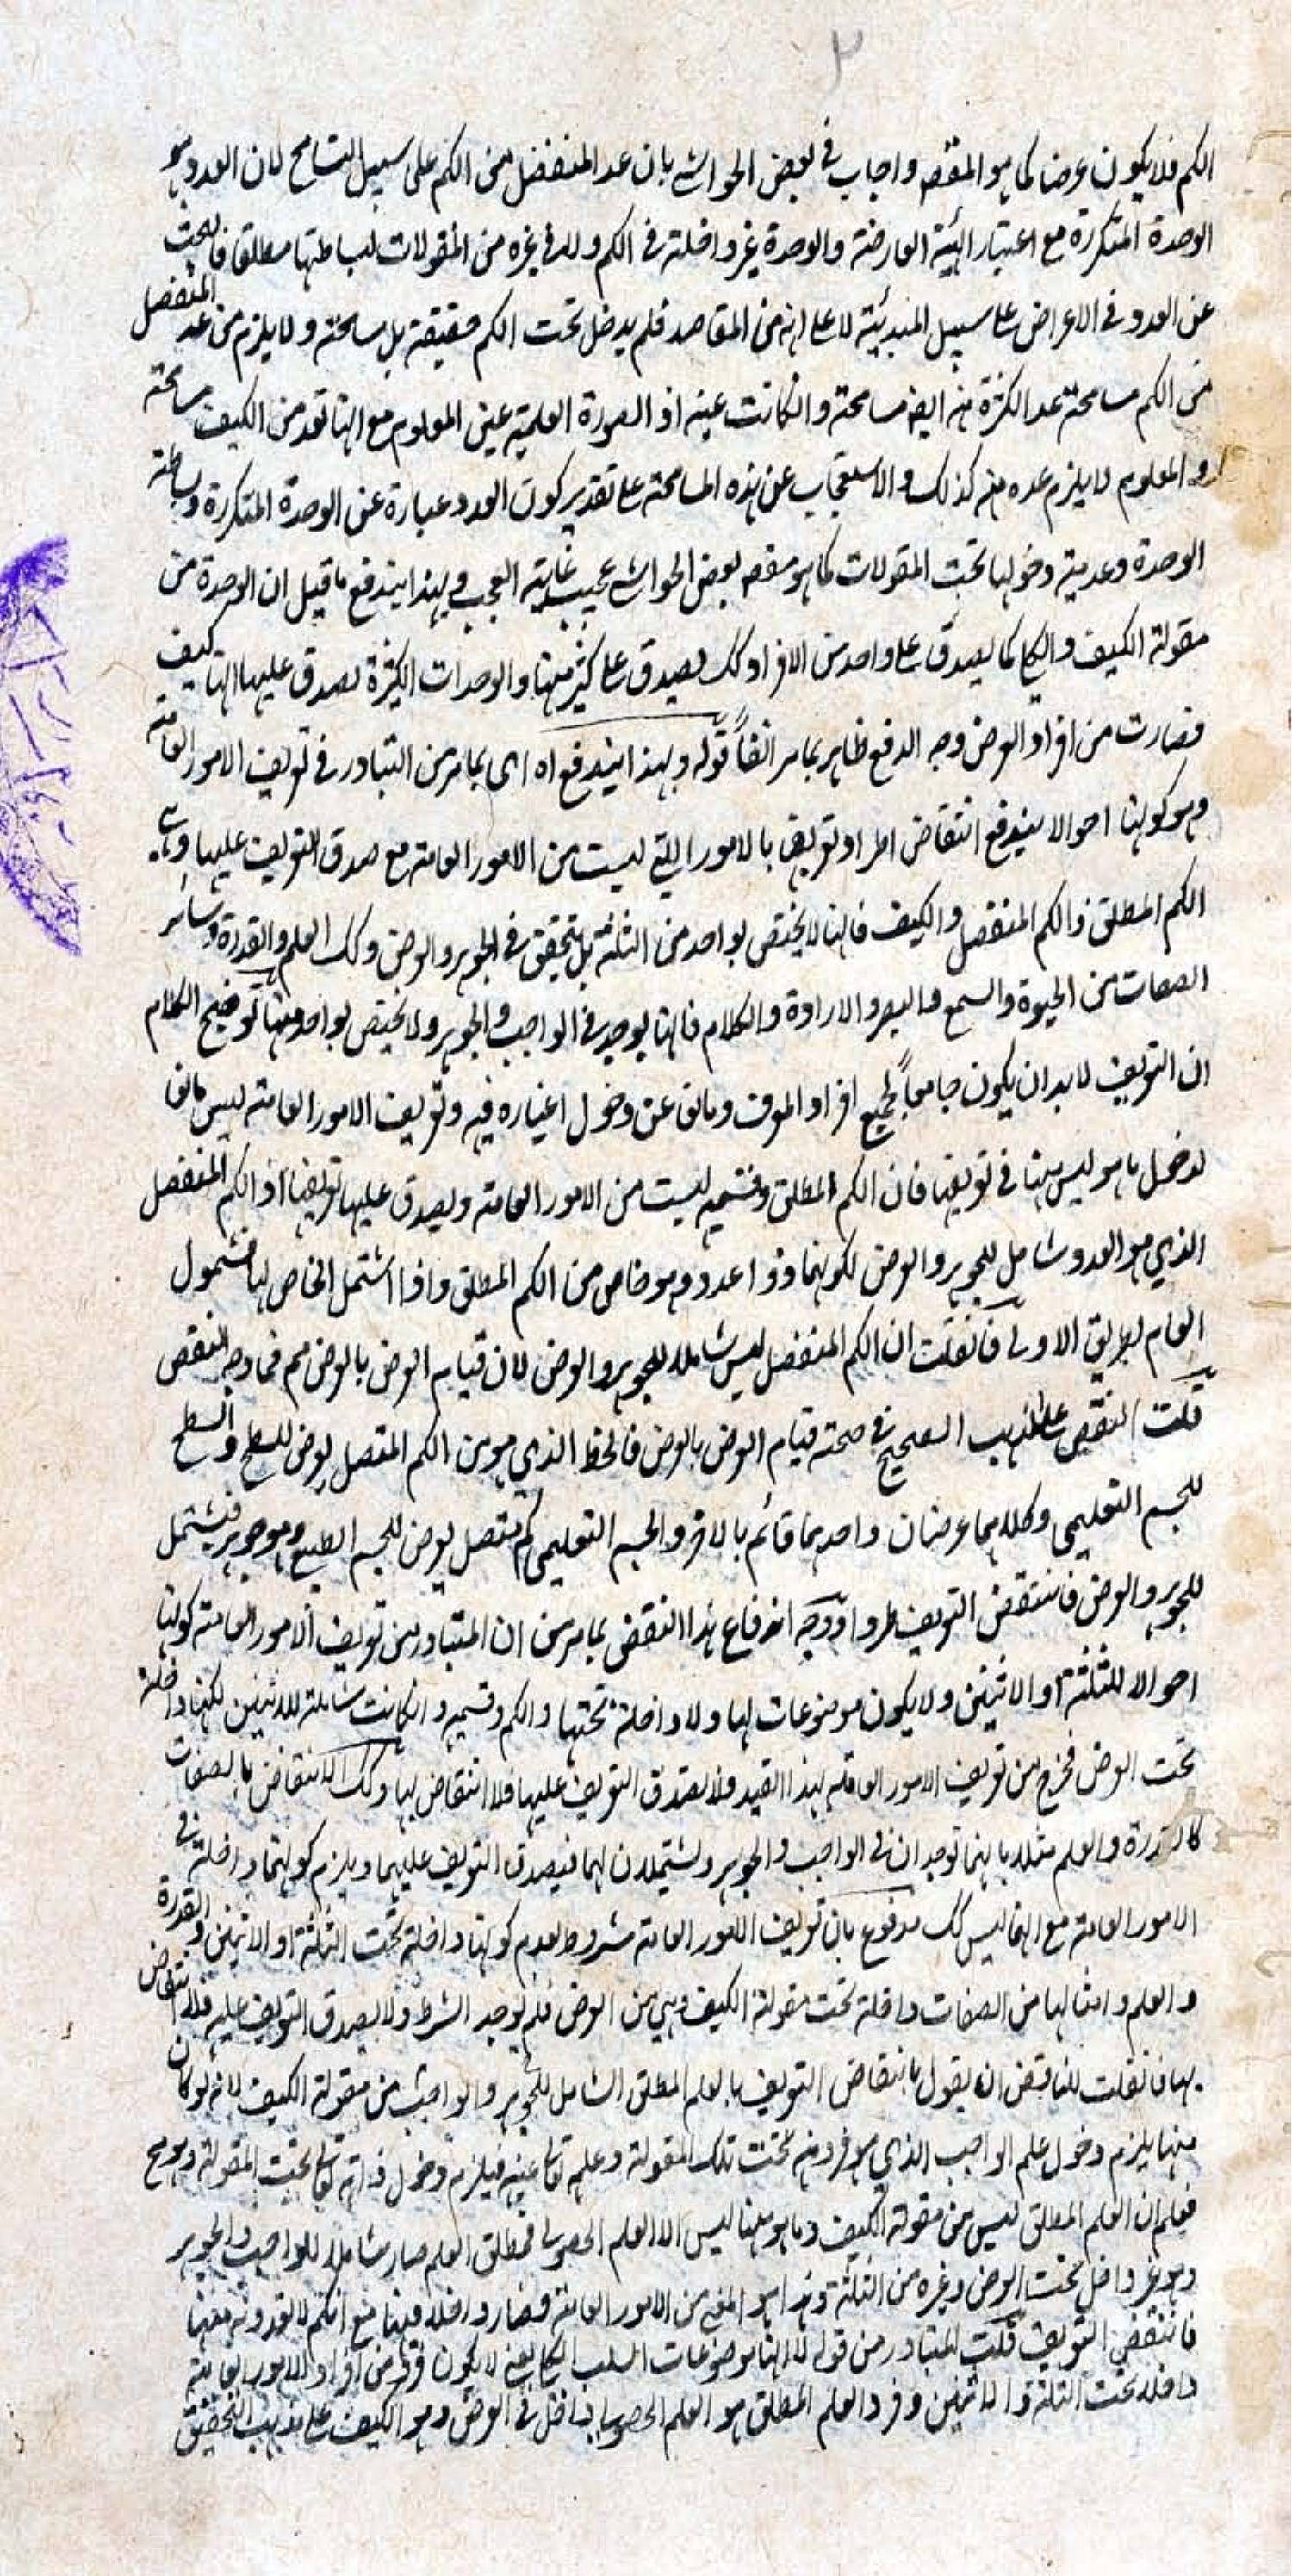 الكم فلا يكون عرضا كما هو المقصود واجاب في بعض الحواشي بان عد المنفصل من الكم على سبيل التسامح لان العدد هو
الوحدة المتكررة مع اعتبار الهيئة العارضة والوحدة غير داخلة في الكم ولا في غيره من المقولات لبساطتها مطلقا فالبحث
عن العدد في الاعراض على سبيل المبدئية لا على انه من المقاصد فلم يدخل تحت الكم حقيقة بل مسامحة ولا يلزم من عد المنفصل
من الكم مسامحة عد الكثرة منه ايضا مسامحة وانكانت عينه اذ الصورة العلمية عين المعلوم مع انها تعد من الكيف مسامحة
والمعلوم لا يلزم عده منه كذلك والاستعجاب عن هذه المسامحة على تقدير كون العدد عبارة عن الوحدة المتكررة وبساطة
الوحدة وعدمية دخولها تحت المقولات كما هو بعض الحواشي عجيب غاية العجب وبهذا يندفع ما قيل ان الوحدة من
مقولة الكيف والكلي كما يصدق على واحد من الافراد كك يصدق على كثير منها والوحدات الكثيرة يصدق عليها انها كيف
فصارت من افراد العرض وجه الدفع ظاهر بما مر انفاً قوله وبهذا يندفع اه اى بما مر من التبادر في تعريف الامور العامة
وهو كونها احوالا يندفع انتقاض اطراد تعريفها بالامور التي ليست من الامور العامة مع صدق التعريف عليها وهي
الكم المطلق والكم المنفصل والكيف فانها لا يختص بواحد من الثلثة بل يتحقق في الجوهر والعرض وكك العلم والقدرة وسائر
الصفات من الحيوة والسمع والبصر والارادة والكلام فانها يوجد في الواجب والجوهر ولا يختص بواحد منها توضيح الكلام
ان التعريف لا بد ان يكون جامعاً لجميع افراد المعرف ومانعا عن دخول اغياره فيه وتعريف الامور العامة ليس مانعا
لدخول ما هو ليس منها في تعريفها فان الكم المطلق وقسميه ليست من الامور العامة ويصدق عليها تعريفها اذ الكم المنفصل
الذي هو العدد شامل للجوهر والعرض لكونهما ذوا عدد وهو خاص من الكم المطلق واذا اشتمل الخاص لها فشمول
العام بطريق الاولى فانقلت ان الكم المنفصل ليس شاملا للجوهر والعرض لان قيام العرض بالعرض مم فما وجه النقض
قلت النقض على المذهب الصحيح في صحته قيام العرض بالعرض فالخط الذي هو من الكم المتصل يعرض للسطح والسطح
للجسم التعليمي وكلاهما عرضان واحدهما قائم بالاخر والجسم التعليمي كم متصل يعرض للجسم الطبيعي وهو جوهر فيشتمل
للجوهر والعرض فانتقض التعريف طردا ووجه اندفاع هذا النقض بما مر من ان المتبادر من تعريف الامور العامة كونها
احوالا للثلثة او الاثنين ولا يكون موضوعات لها ولا داخلة تحتها والكم وقسميه وانكانت شاملة للاثنين لكنها داخلة
تحت العرض فخرج من تعريف الامور العامة بهذا القيد فلا يصدق التعريف عليها فلا انتقاض بها وكك الانتقاض بالصفات
كالقدرة والعلم مثلا بانهما توجدان في الواجب والجوهر ويشتملان لهما فيصدق التعريف عليهما ويلزم كونهما داخلة في
الامور العامة مع انها ليس كك مدفوع بان تعريف الامور العامة مشروط بعدم كونها داخلة تحت الثلثة او الاثنين والقدرة
والعلم وامثالها من الصفات داخلة تحت مقولة الكيف وهي من العرض فلم يوجد الشرط فلا يصدق التعريف عليه فلا انتقاض
بها فانقلت للناقض ان يقول بانتقاض التعريف بالعلم المطلق الشامل للجوهر والواجب من مقولة الكيف لانه لو كان
منها يلزم دخول علم الواجب الذي هو فرد منه تحت تلك المقولة وعلمه تعالى عينه فيلزم دخول ذاته تعالى تحت المقولة وهو مح
فعلم ان العلم المطلق ليس من مقولة الكيف وما هو منها ليس الا العلم الحصولي فمطلق العلم صار شاملا للواجب والجوهر
وهو غير داخل تحت العرض وغيره من الثلثة وهذا هو المعنى من الامور العامة فصار داخلا فيها مع انكم لا تعدونه منها
فانتقض التعريف قلت المتبادر من قوله لا انها موضوعات السلب الكلي يعني لا يكون فرد من افراد الامور العامة
داخلا تحت الثلثة والاثنين وفرد العلم المطلق هو العلم الحصولي داخل في العرض وهو الكيف على مذهب التحقيق